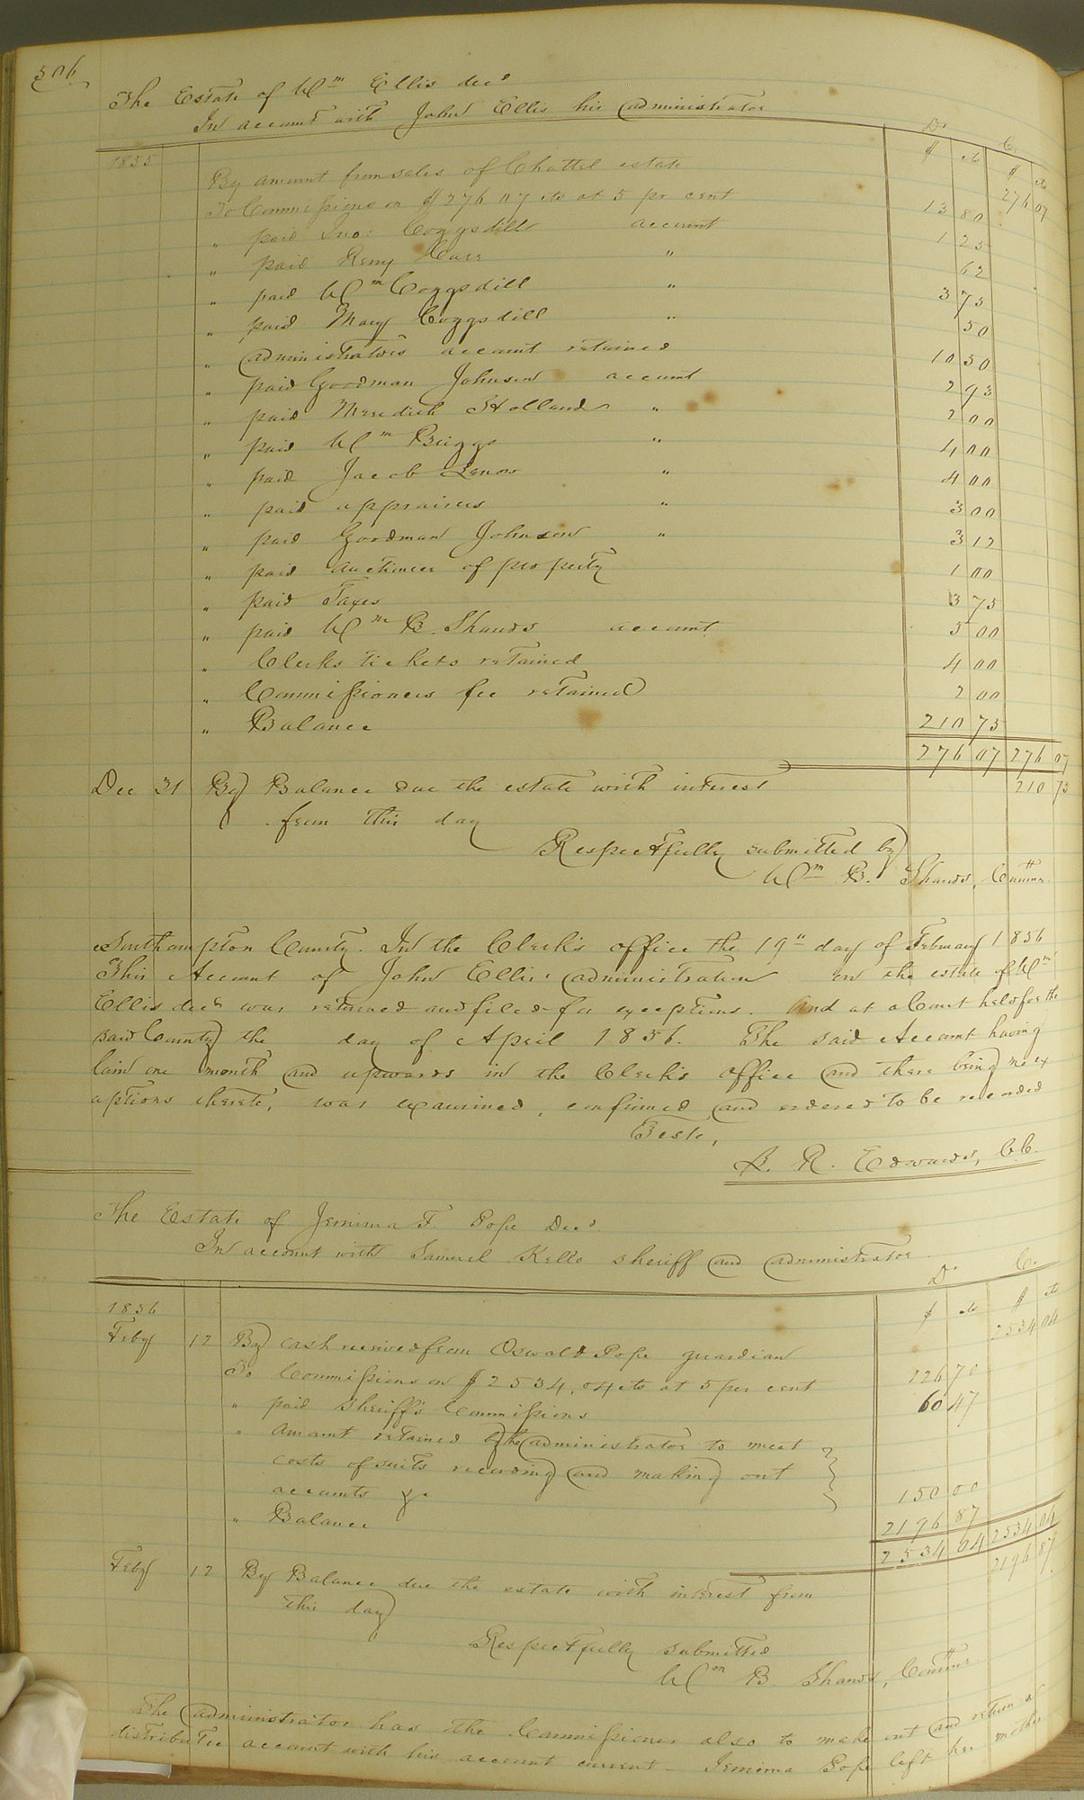 506
The Estate of Wm Ellis decd
In account with John Ellis his administrator
Dr Cr
1855 $ cts $ cts
By amount from sales of Chattel estate 276 07
To Commissions on $276 07 cts at 5 pr cent 13 80
" paid Jno: Coggsdill account 1 25
" paid Remy 62
" paid Wm Coggsdill " 3 75
" paid Mary Coggsdill " 50
" administrators account retained 10 50
" paid Goodman Johnson account 2 93
" paid Meredith Holland " 2 00
" paid Wm Briggs " 4 00
" paid Jacob Lenow " 4 00
" paid appraisers " 3 00
" paid Goodman Johnson " 3 12
" paid Auctioneer of property 1 00
" paid Taxes 3 75
" paid Wm B. Shands account 5 00
" Clerks tickets retained 4 00
" Commissioners fee retained 2 00
" Balance 210 75
276 07 276 07
Dec 31 By Balance due the estate with interest 210 75
from this day
Respectfully submitted by
Wm B. Shands, Commr
Southampton County. In the Clerk's office the 19th day of February 1856
This Account of John Ellis' administration on the estate of Wm
Ellis decd was returned and filed for exceptions. And at a Court held for the
said County the day of April 1856. The said Account having
lain one month and upwards in the Clerk's office and there being no ex
ceptions thereto, was examined, confirmed and ordered to be recorded
Teste,
L. R. Edwards, C.C.
The Estate of Jemima F. Pope Decd.
In account with Samuel Kello sheriff and administrator
Dr Cr
1856 $ cts $ cts
Feby 12 By cash received from Oswald Pope guardian 2534 04
To Commissions on $2534.04 cts at 5 per cent 126 70
" paid Sheriff's Commissions 60 47
" Amount retained by the administrator to meet
costs of suits recording and making out
accounts &c 150 00
" Balance 2196 87
2534 04 2534 04
Feby 12 By Balance due the estate with interest from 2196 87
this day
Respectfully submitted
Wm B. Shands, Commr
The administrator has the Commissioner also to make out and return a
distributee account with his account current - Jemima Pope left her mother